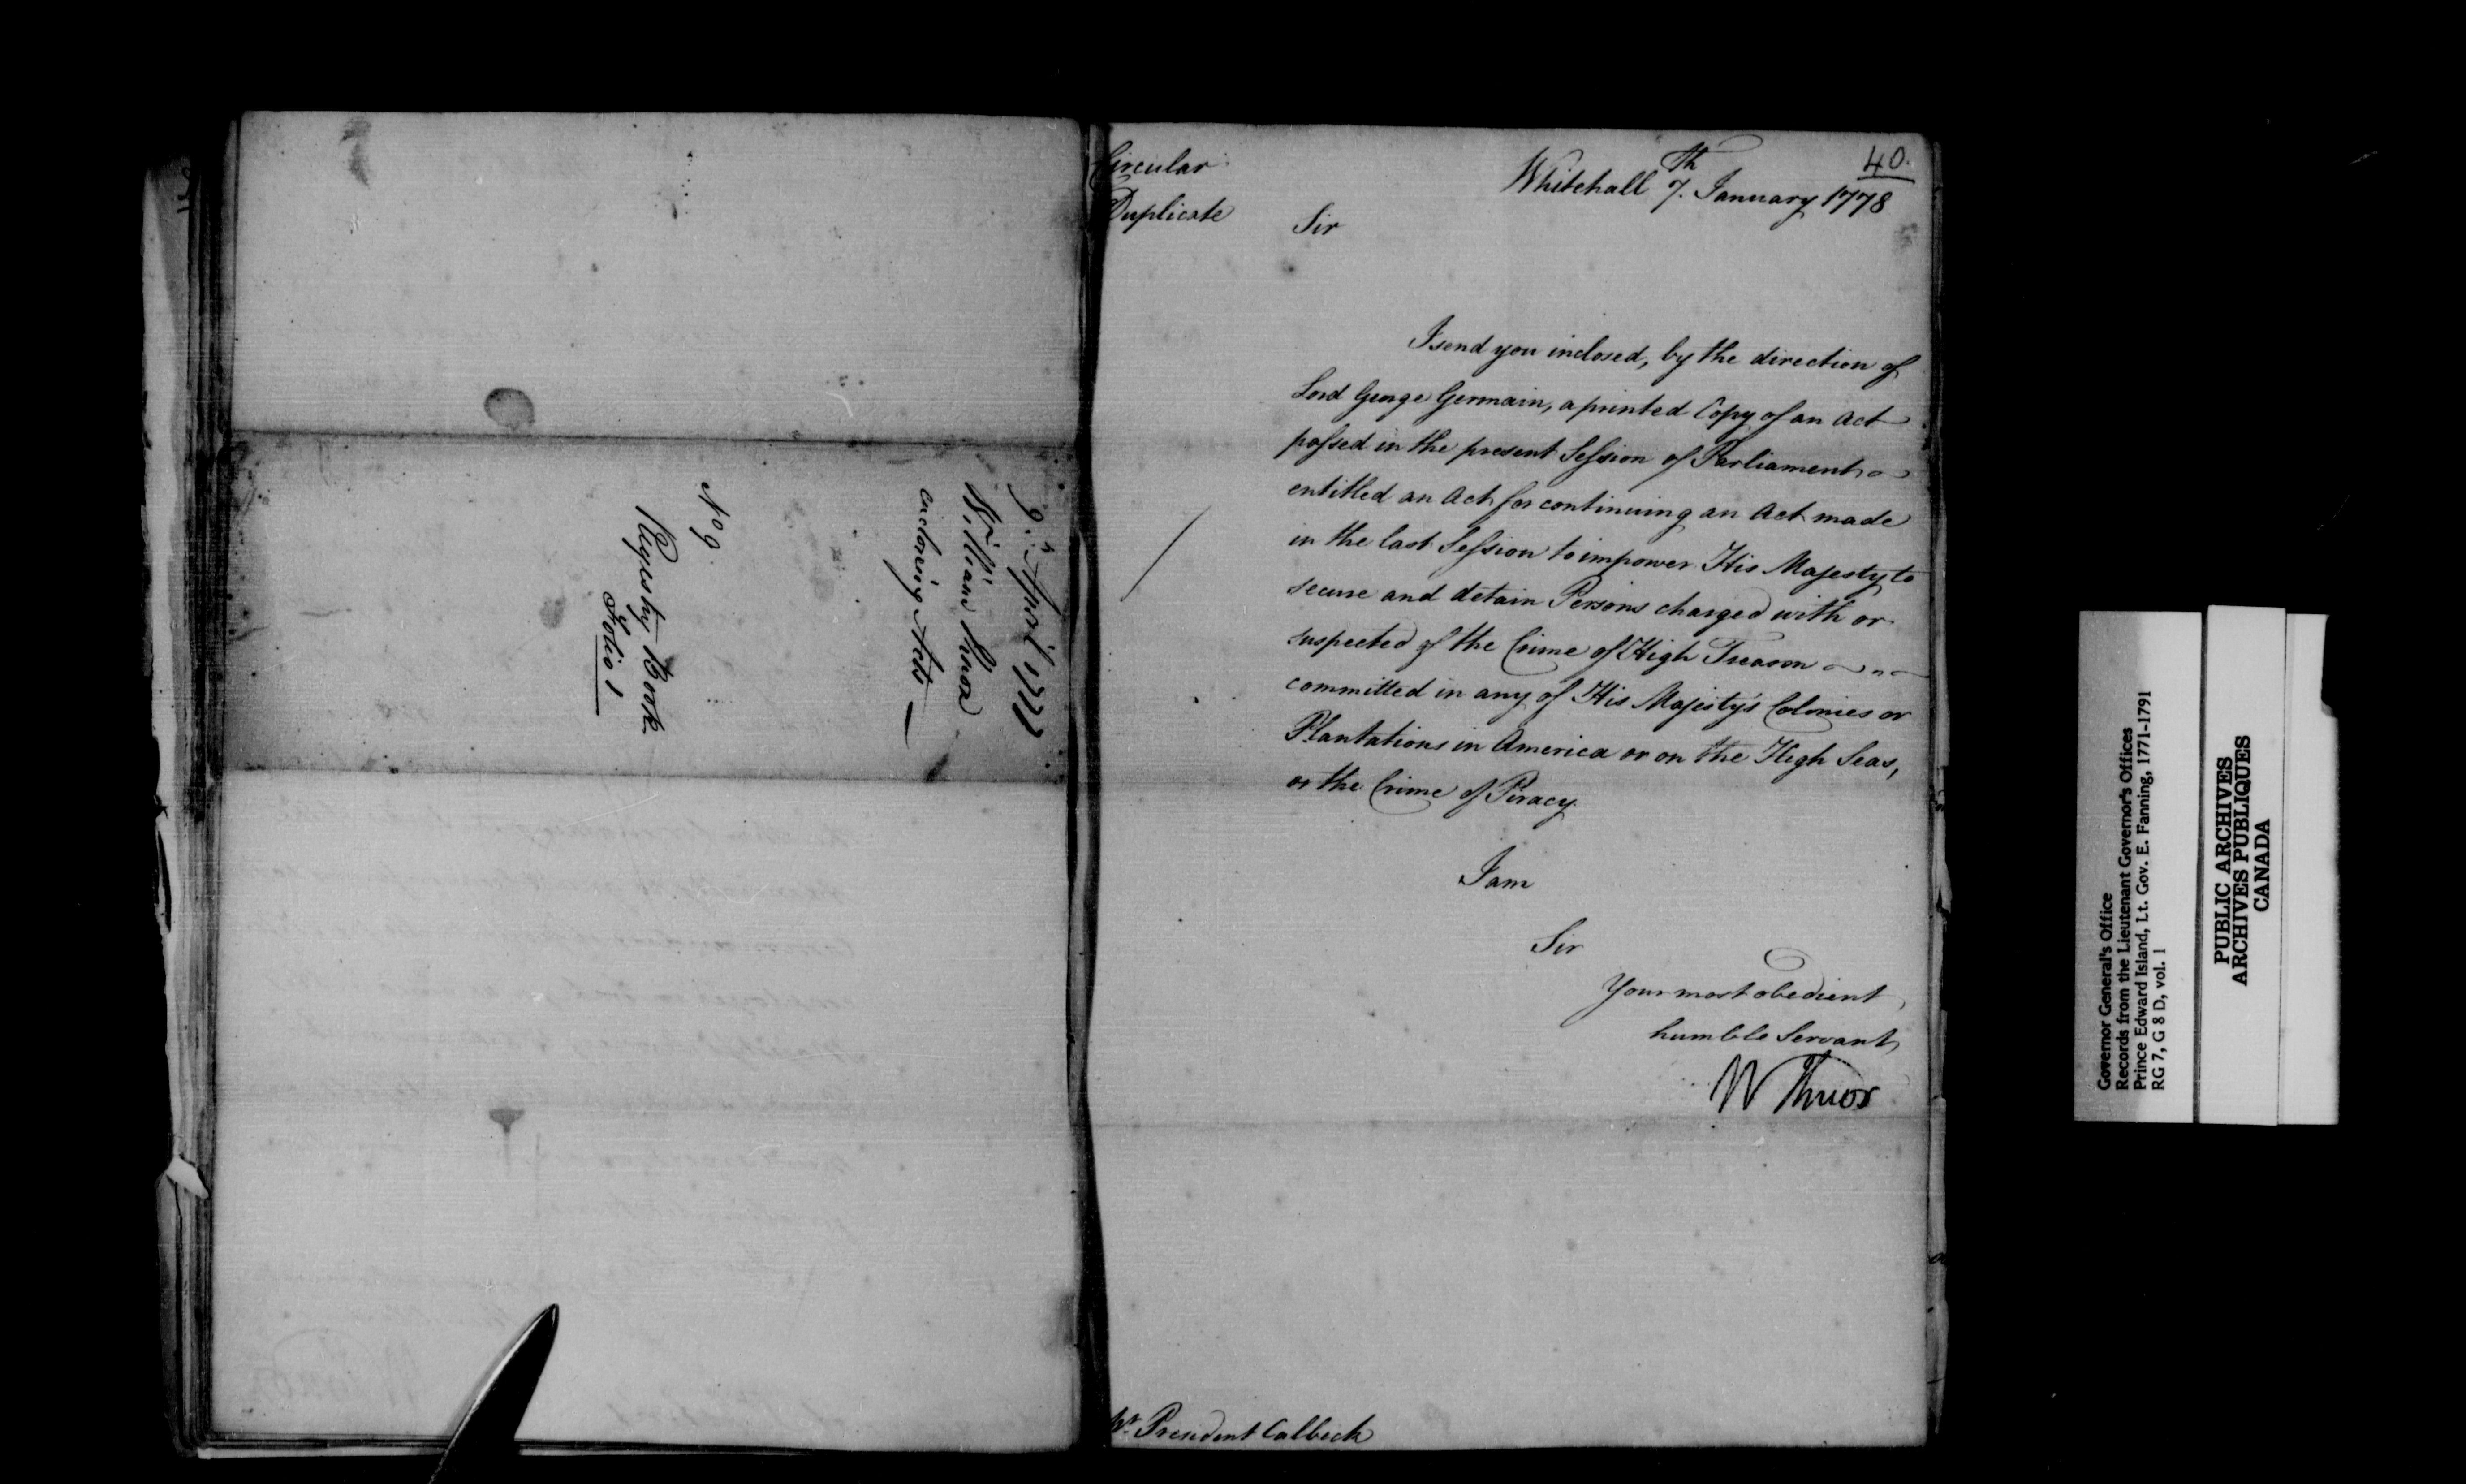 9th April 1777
William Knox
enclosing Acts
No 9
Regestry Book
Folio 1
40.
Circular
Duplicate
Whitehall 7.Th January 1778
Sir
I send you inclosed, by the direction of
Lord George Germain, a printed Copy of an Act
passed in the present Session of Parliament
entitled an Act for continuing an Act made
in the last Session to impower His Majesty to
secure and detain Persons charged with or
suspected of the Crime of High Treason
committed in any of His Majesty's Colonies or
Plantations in America or on the High Seas,
or the Crime of Piracy.
I am
Sir
Your most obedient
humble Servant
W Knox
Mr. President Callbeck
Governor General's Office
Records from the Lieutenant Governor's Offices
Prince Edward Island, Lt. Gov. E. Fanning, 1771-1791
RG 7, G 8 D, vol. 1
PUBLIC ARCHIVES
ARCHIVES PUBLIQUES
CANADA